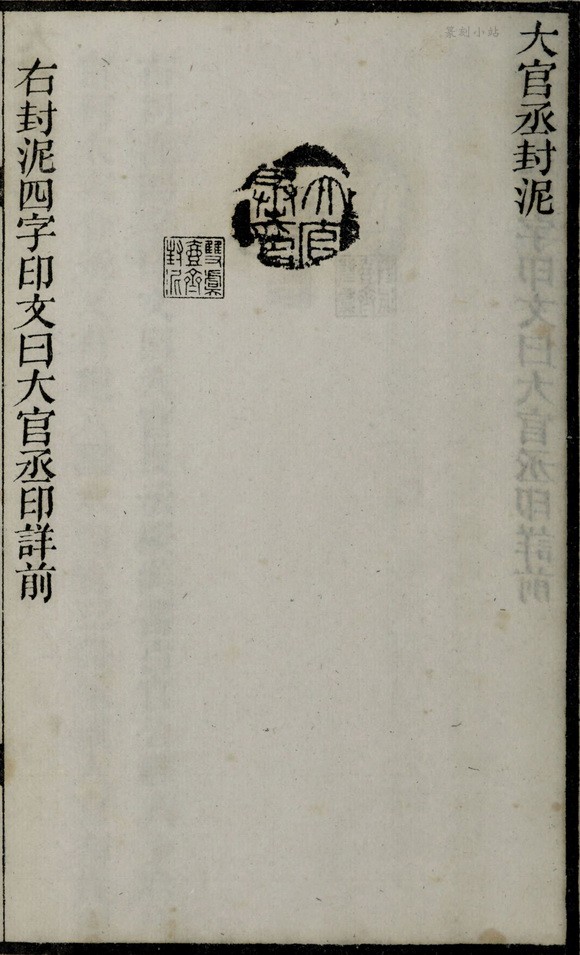 篆刻小站
大官丞封泥
大官
丞印
雙虞
壺齋
封泥
右封泥四字印文曰大官丞印詳前